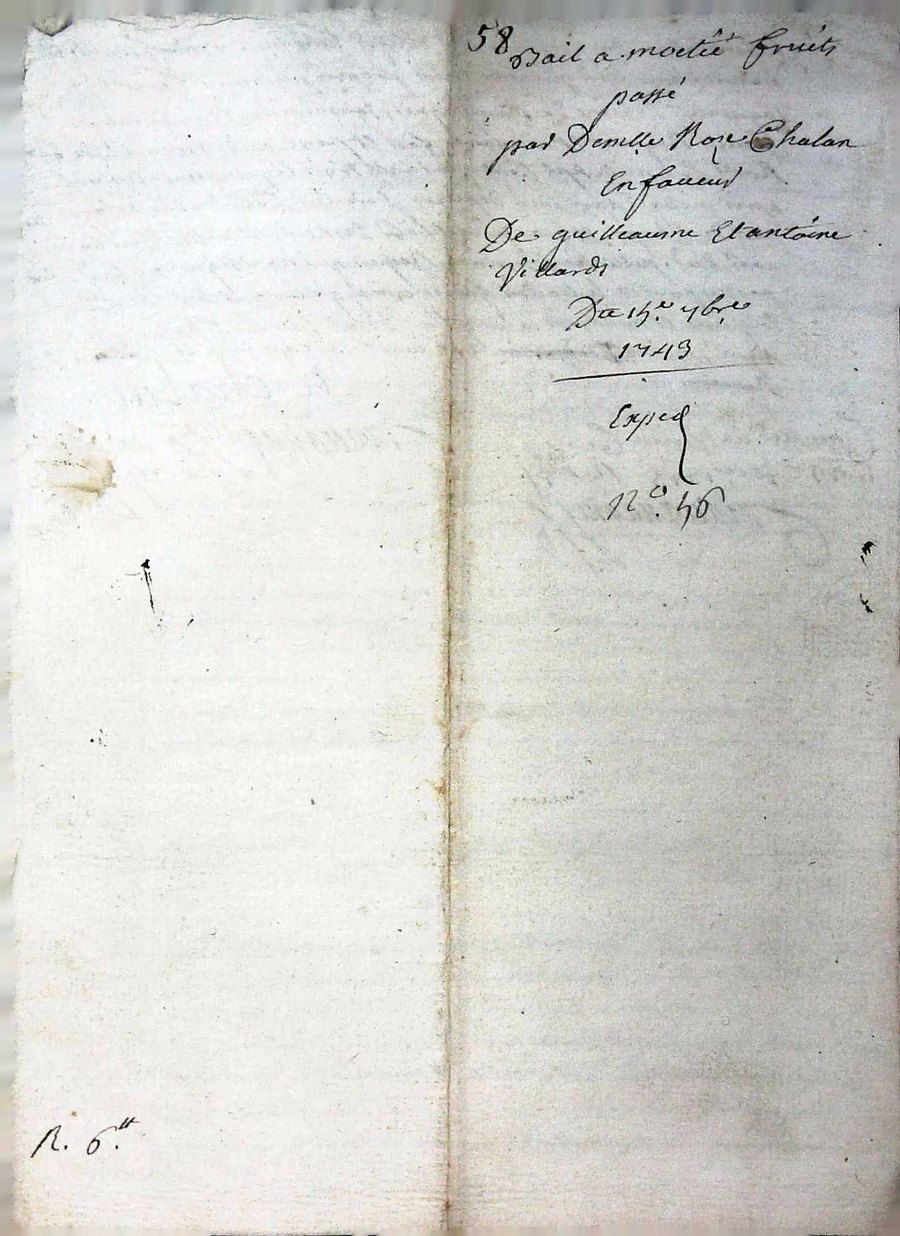 58
Bail a moetié fruits
passé
par Demlle Rose Chalan
En faueur
De guilleaume Et antoine
Villards
Du 15e. 7bre
1743
Exped
No. 56
R. 6.tt